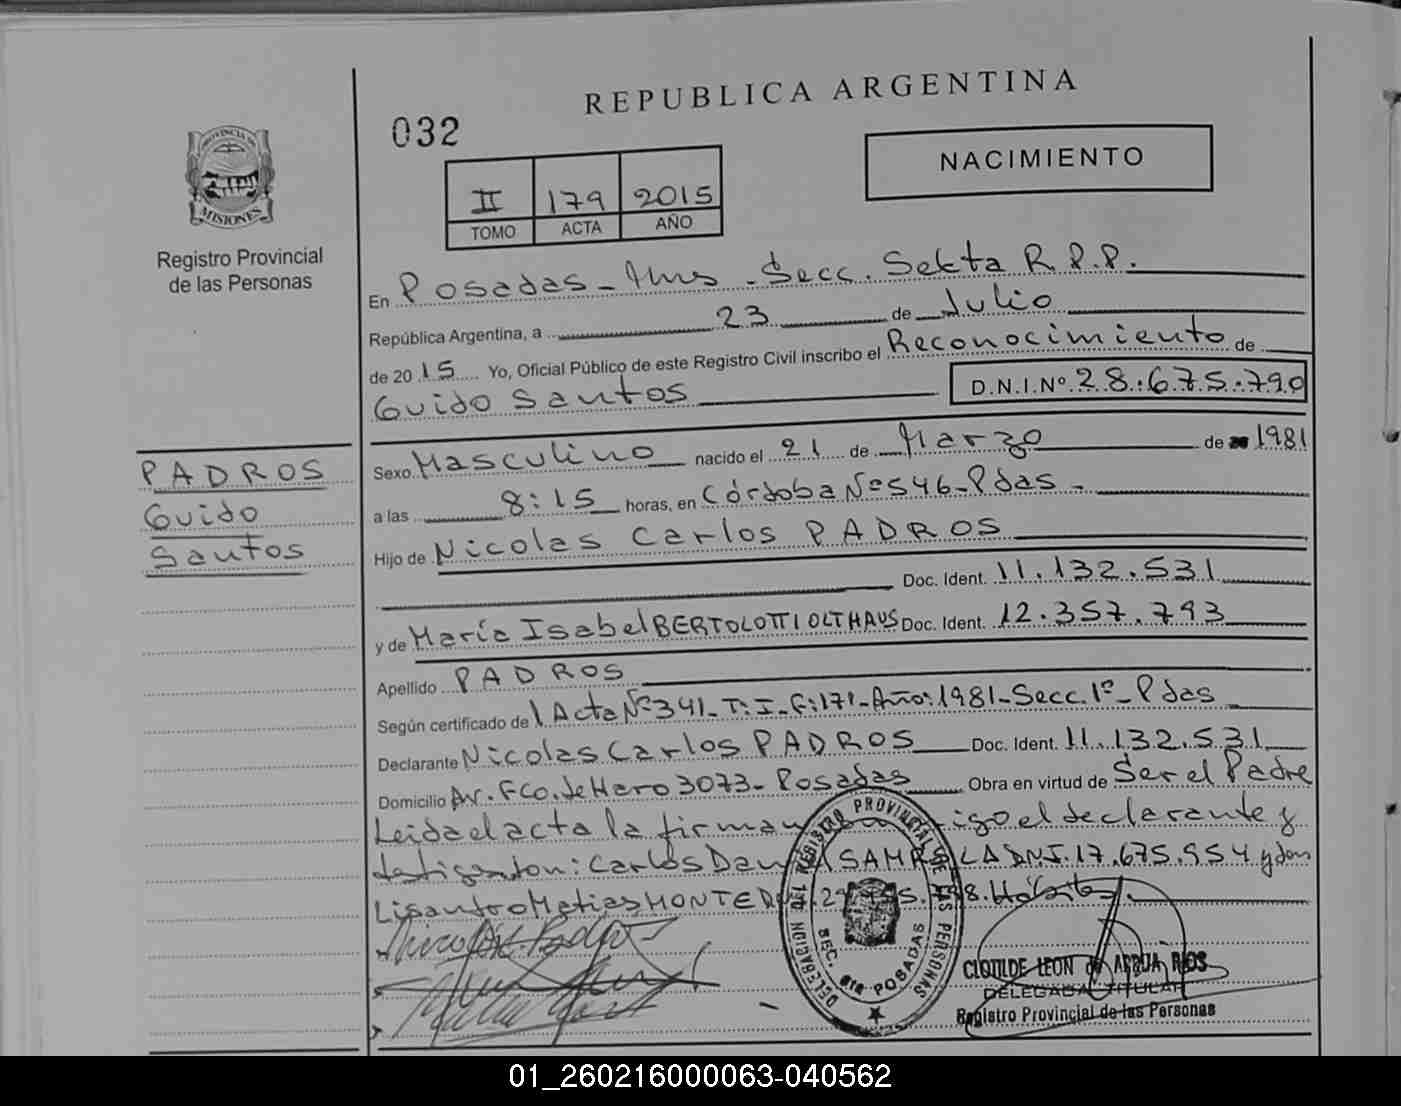 REPUBLICA ARGENTINA
032
NACIMIENTO
II 179 2015
TOMO ACTA AÑO
PROVINCIA DE
MISIONES
Registro Provincial
de las Personas
En Posadas - Mnes - Secc. Sekta R.P.P.
República Argentina, a 23 de Julio
de 2015 Yo, Oficial Público de este Registro Civil inscribo el Reconocimiento de
Guido Santos D.N.I.Nº 28.675.790
PADROS
Guido
Santos
Sexo Masculino nacido el 21 de Marzo de 1981
a las 8:15 horas, en Córdoba Nº 546 - Pdas -
Hijo de Nicolas Carlos PADROS
Doc. Ident. 11.132.531
y de María Isabel BERTOLOTTI OLTHAUS Doc. Ident. 12.357.793
Apellido PADROS
Según certificado de Acta Nº 341 - T: I - F: 171 - Año: 1981 - Secc. 1º - Pdas
Declarante Nicolas Carlos PADROS Doc. Ident. 11.132.531
Domicilio Av. Fco. de Haro 3073 - Posadas Obra en virtud de Ser el Padre
Leida el acta la firman el declarante y
testigos don: Carlos LA DNI. 17.675.954 y don
Lisandro Matias
DELEGACION REGISTRO PROVINCIAL DE LAS PERSONAS
SEC. 6ta POSADAS
CLOTILDE LEON de ARRUA RIOS
DELEGADA TITULAR
Registro Provincial de las Personas
01_260216000063-040562